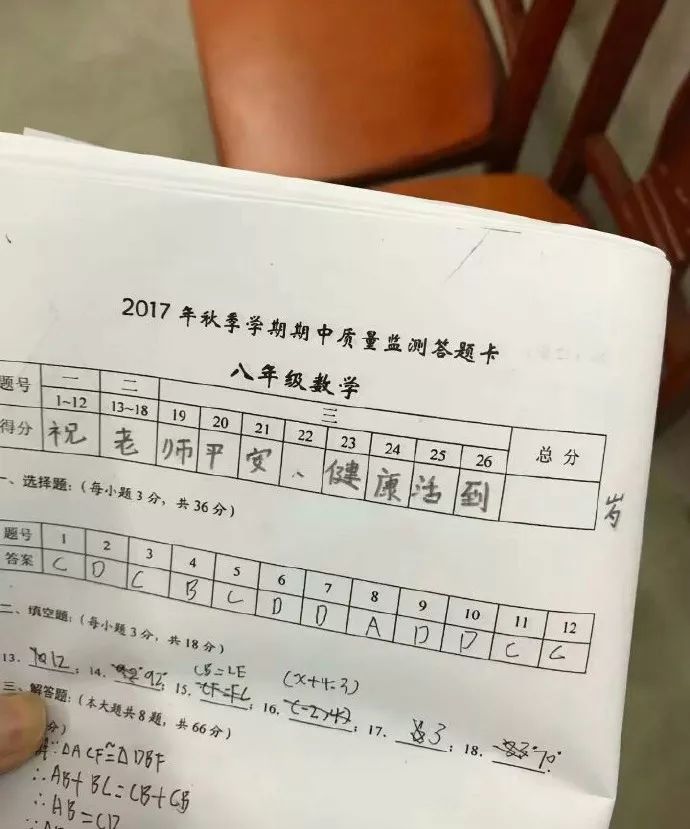 2017年秋季学期期中质量监测答题卡
八年级数学
题号 一 二 三 总分
1~12 13~18 19 20 21 22 23 24 25 26
得分 祝 老 师 平 安 、 健 康 活 到 岁
一、选择题:(每小题3分,共36分)
题号 1 2 3 4 5 6 7 8 9 10 11 12
答案 C D C B C D D A D D C C
二、填空题:(每小题3分,共18分)
CB=LE (x+4-3)
13. 12 ; 14. 92° ; 15. ; 16. ; 17. 3 ; 18. 70°
三、解答题:(本大题共8题,共66分)
分)
∵△ACF≌△DBF
∴AB+BC=CB+CB
∴AB=CD